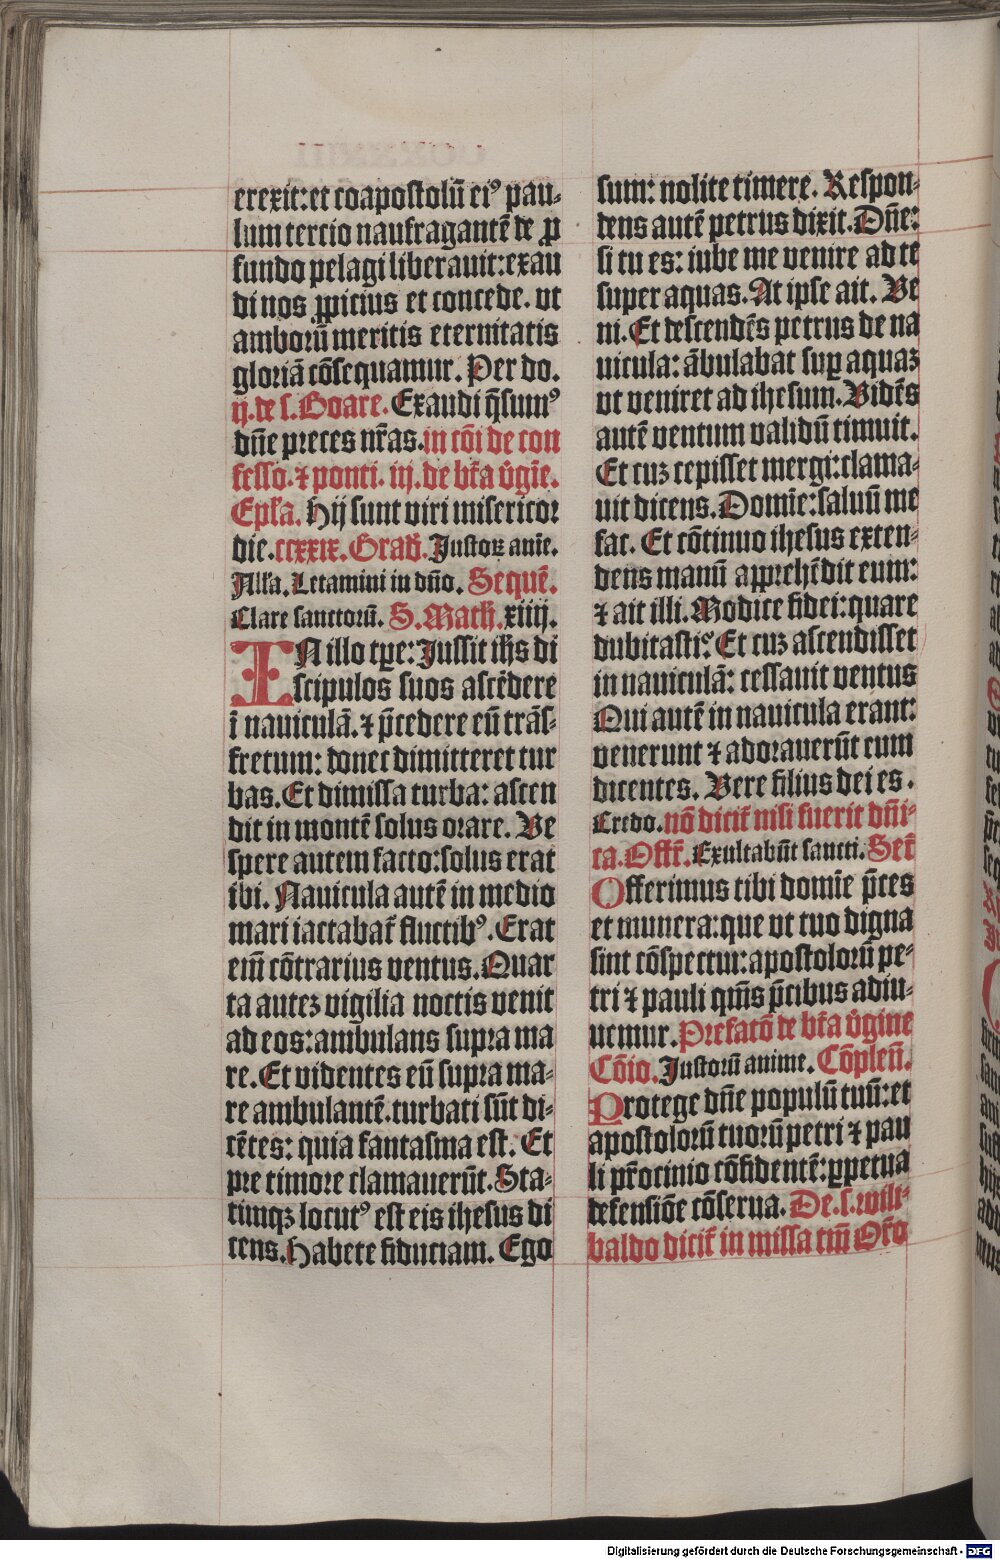 erexit: et coapostolū eiꝰ pau-
lum tercio naufragantē de ꝓ
fundo pelagi liberauit: exau
di nos ꝓpicius et concede. vt
amborū meritis eternitatis
gloriā cōsequamur. Per do.
ij. de s. Goare. Exaudi q̄sumꝰ
dn̄e preces nr̄as. in cōi de con
fesso. ⁊ ponti. iij. de bt̄a v̄gīe.
Epl̄a. Hij sunt viri misericor
die. ccxxix. Grad̄. Justoꝝ anīe.
All̄a. Letamini in dn̄o. Sequē.
Clare sanctorū. S. Math̄. xiiij.
IN illo tꝑe: Jussit ih̄s di
scipulos suos ascēdere
ī nauiculā. ⁊ p̄cedere eū trās-
fretum: donec dimitteret tur
bas. Et dimissa turba: ascen
dit in montē solus orare. Ve
spere autem facto: solus erat
ibi. Nauicula autē in medio
mari iactabat̄ fluctibꝰ. Erat
em̄ cōtrarius ventus. Quar
ta autez vigilia noctis venit
ad eos: ambulans supra ma
re. Et videntes eū supra ma-
re ambulantē. turbati sūt di-
cētes: quia fantasma est. Et
pre timore clamauerūt. Sta-
timqꝫ locutꝰ est eis ihesus di
cens. Habete fiduciam. Ego
sum: nolite timere. Respon-
dens autē petrus dixit. Dn̄e:
si tu es: iube me venire ad te
super aquas. At ipse ait. Ve
ni. Et descendēs petrus de na
uicula: ābulabat suꝑ aquaz
vt veniret ad ihesum. Vidēs
autē ventum validū timuit.
Et cuz cepisset mergi: clama-
uit dicens. Domīe: saluū me
fac. Et cōtinuo ihesus exten-
dens manū apprehēdit eum:
⁊ ait illi. Modice fidei: quare
dubitasti? Et cuz ascendisset
in nauiculā: cessauit ventus
Qui autē in nauicula erant:
venerunt ⁊ adorauerūt eum
dicentes. Vere filius dei es.
Credo. nō dicit̄ nisi fuerit dn̄i-
ca. Offr̄. Exultabūt sancti. Secr̄
Offerimus tibi domīe p̄ces
et munera: que vt tuo digna
sint cōspectui: apostolorū pe-
tri ⁊ pauli qm̄s p̄cibus adiu-
uemur. Prefatō de bt̄a v̄gine
Cōio. Justorū anime. Cōpleñ.
Protege dn̄e populū tuū: et
apostolorū tuorū petri ⁊ pau
li pr̄ocinio cōfidentē: ꝑpetua
defensiōe cōserua. De. s. wili-
baldo dicit̄ in missa tm̄ Or̄o
Digitalisierung gefördert durch die Deutsche Forschungsgemeinschaft - DFG